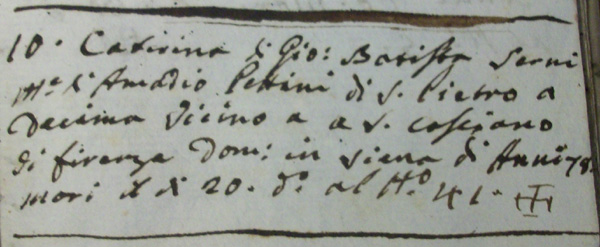 10. Caterina di Gio: Batista Serni
M.e di Amadio Pettini di S. Pietro a
Decima Vicino a a S. Casciano
di firenza Dom: in Siena di Anni 78.
mori il di 20. d.o al N.o 41.